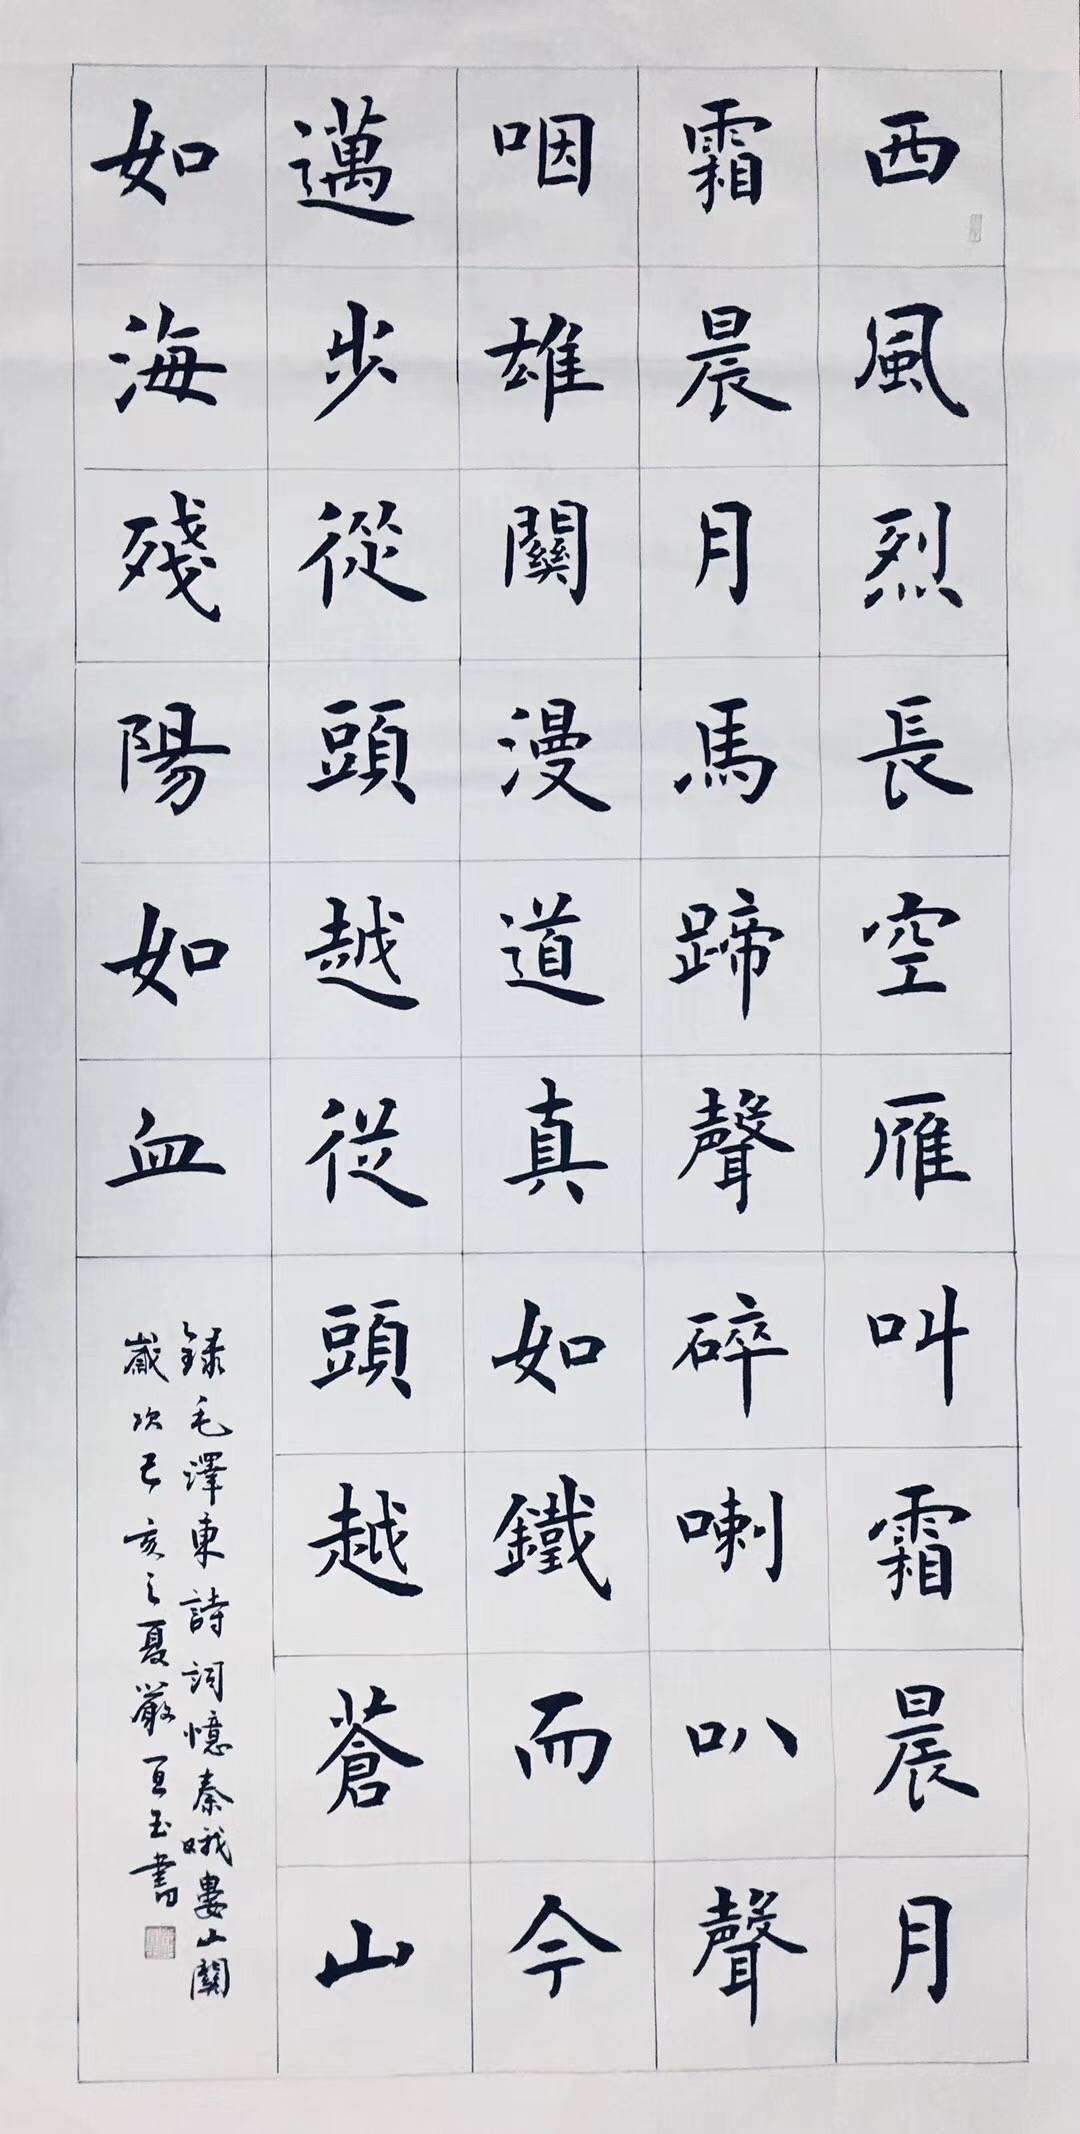 西風烈長空雁叫霜晨月
霜晨月馬蹄聲碎喇叭聲
咽雄關漫道真如鐵而今
邁步從頭越從頭越蒼山
如海殘陽如血
錄毛澤東詩詞憶秦娥婁山關
歲次己亥之夏嚴亙玉書